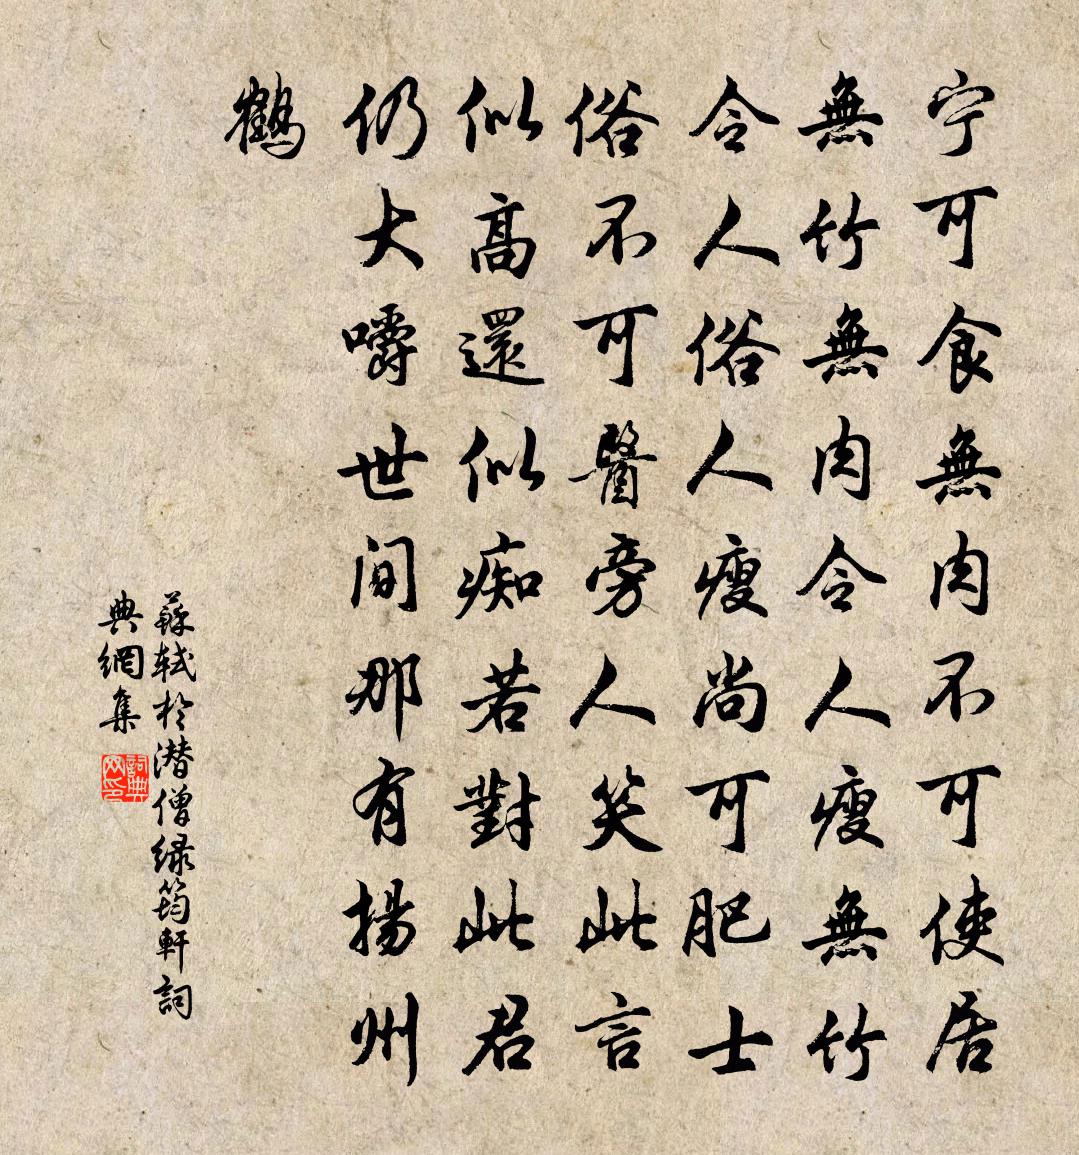 宁可食無肉不可使居
無竹無肉令人瘦無竹
令人俗人瘦尚可肥士
俗不可醫旁人笑此言
似高還似痴若對此君
仍大嚼世间那有揚州
鶴
蘇軾於潛僧緑筠軒詞
典網集
詞典
网印